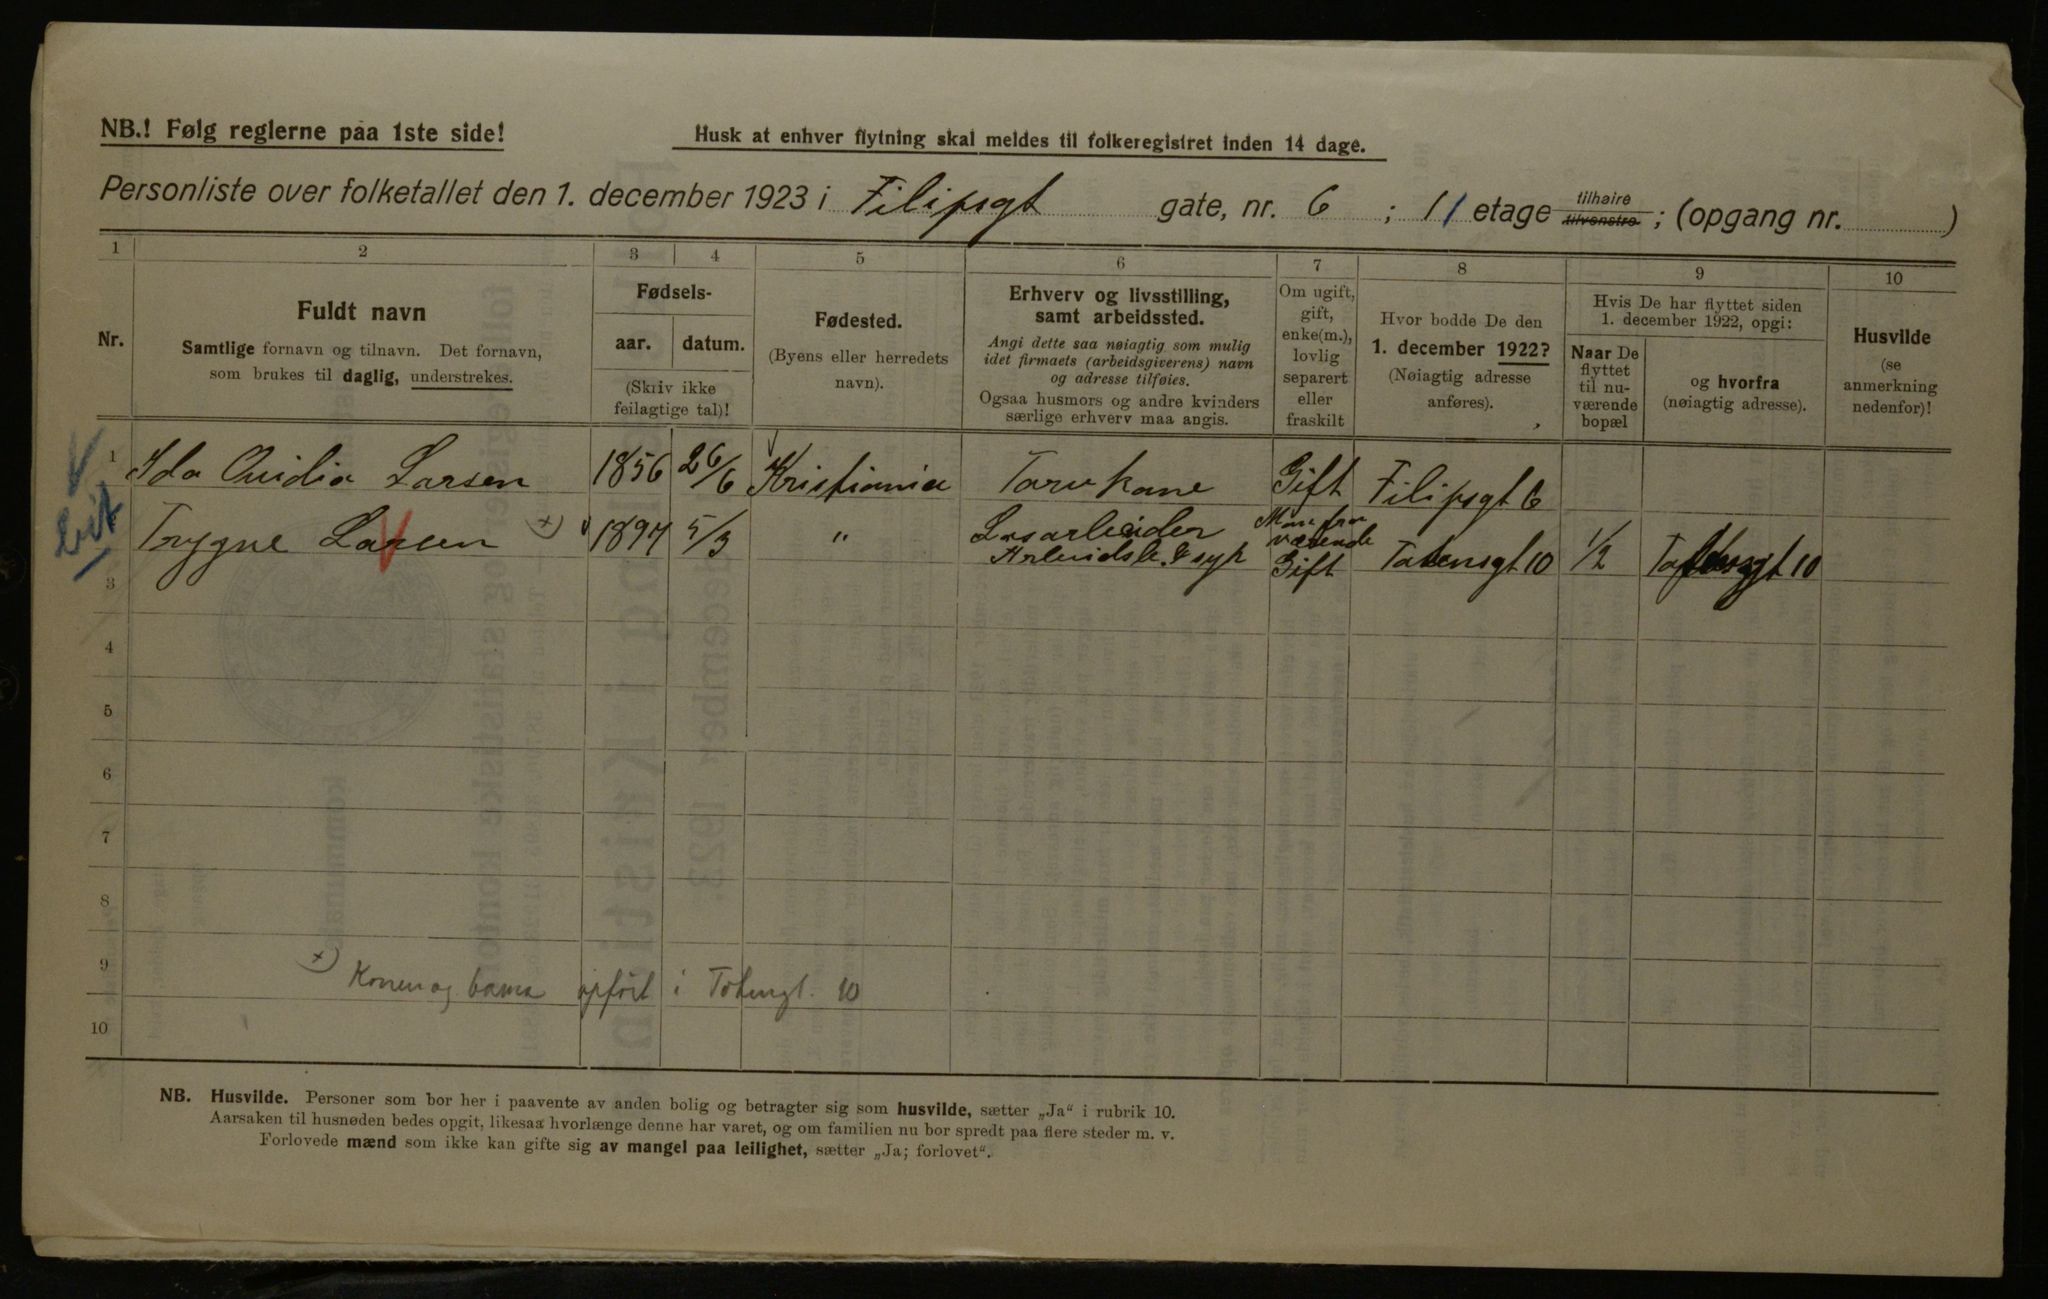 NB.! Følg reglerne paa 1ste side!
Husk at enhver flytning skal meldes til folkeregistret inden 14 dage.
Personliste over folketallet den 1. december 1923 i Filipsgt gate, nr. 6 ; 11 etage tilhøire tilvenstre ; (opgang nr. )
1 2 3 4 5 6 7 8 9 10
Nr.
Fuldt navn
Samtlige fornavn og tilnavn. Det fornavn,
som brukes til daglig, understrekes.
Fødsels-
aar. datum.
(Skriv ikke
feilagtige tal)!
Fødested.
(Byens eller herredets
navn).
Erhverv og livsstilling,
samt arbeidssted.
Angi dette saa nøiagtig som mulig
idet firmaets (arbeidsgiverens) navn
og adresse tilføies.
Ogsaa husmors og andre kvinders
særlige erhverv maa angis.
Om ugift,
gift,
enke(m.),
lovlig
separert
eller
fraskilt
Hvor bodde De den
1. december 1922?
(Nøiagtig adresse
anføres).
Hvis De har flyttet siden
1. december 1922, opgi:
Naar De
flyttet
til nu-
værende
bopæl
og hvorfra
(nøiagtig adresse).
Husvilde
(se
anmerkning
nedenfor)!
1 Ida Ovidia Larsen 1856 26/6 Kristiania Gift Filipsgt 6
Trygve Larsen x) 1897 5/3 " Løsarbeider
Gift 10 1/2 10
3
4
5
6
7
8
9
x) Konen og barna opført i Totengt. 10
10
NB. Husvilde. Personer som bor her i paavente av anden bolig og betragter sig som husvilde, sætter „Ja" i rubrik 10.
Aarsaken til husnøden bedes opgit, likesaa hvorlænge denne har varet, og om familien nu bor spredt paa flere steder m. v.
Forlovede mænd som ikke kan gifte sig av mangel paa leilighet, sætter „Ja; forlovet".